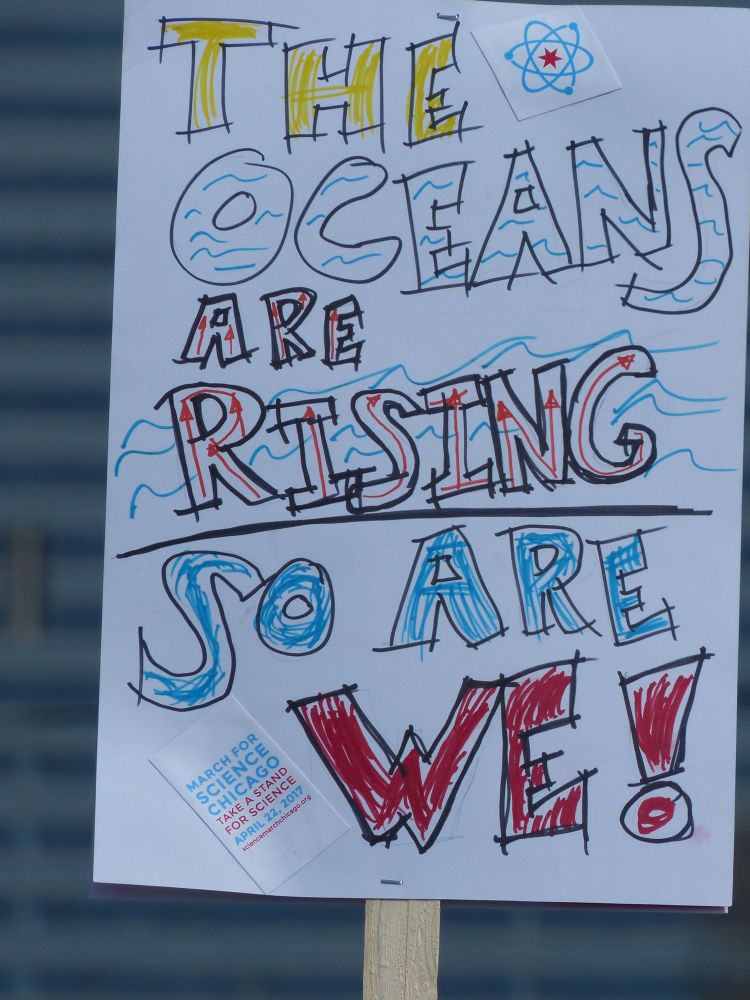 THE
OCEANS
ARE
RISING
SO ARE
WE!
MARCH FOR
SCIENCE
CHICAGO
TAKE A STAND
FOR SCIENCE
APRIL 22, 2017
sciencemarchchicago.org